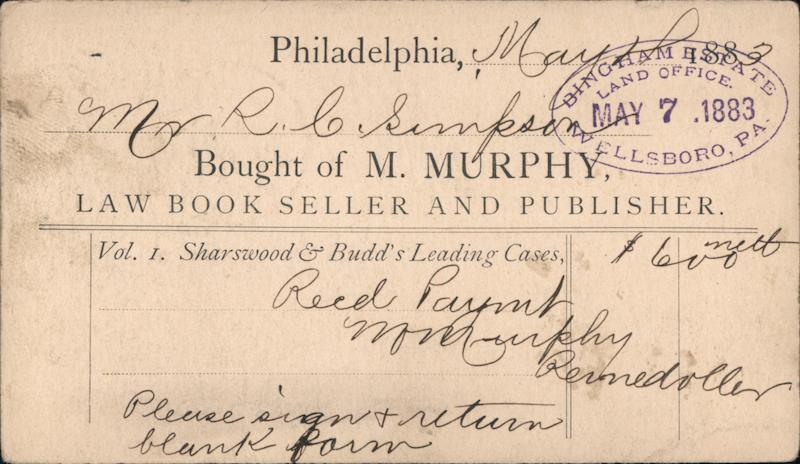 Philadelphia, May 5th 1883
BINGHAM ESTATE
LAND OFFICE.
MAY 7 .1883
WELLSBORO, PA.
Mr R. C. Simpson
Bought of M. MURPHY,
LAW BOOK SELLER AND PUBLISHER.
Vol. 1. Sharswood & Budd's Leading Cases, $ 6 00 nett
Recd Paymt
M Murphy
Please sign & return
blank form